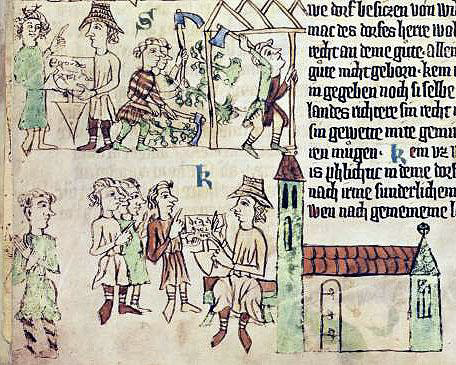 we dorf besiczen von wil
mac des dorfes herre wol
recht an deme gute. allein
gute nicht geborn. kein
in gegeben noch si selbe
landes richtere sin recht
sin gewette mite gemin
ren mugen. kein uz
in deme dorf
nach irme sunderlichem
wen nach gemeineme l
S
k